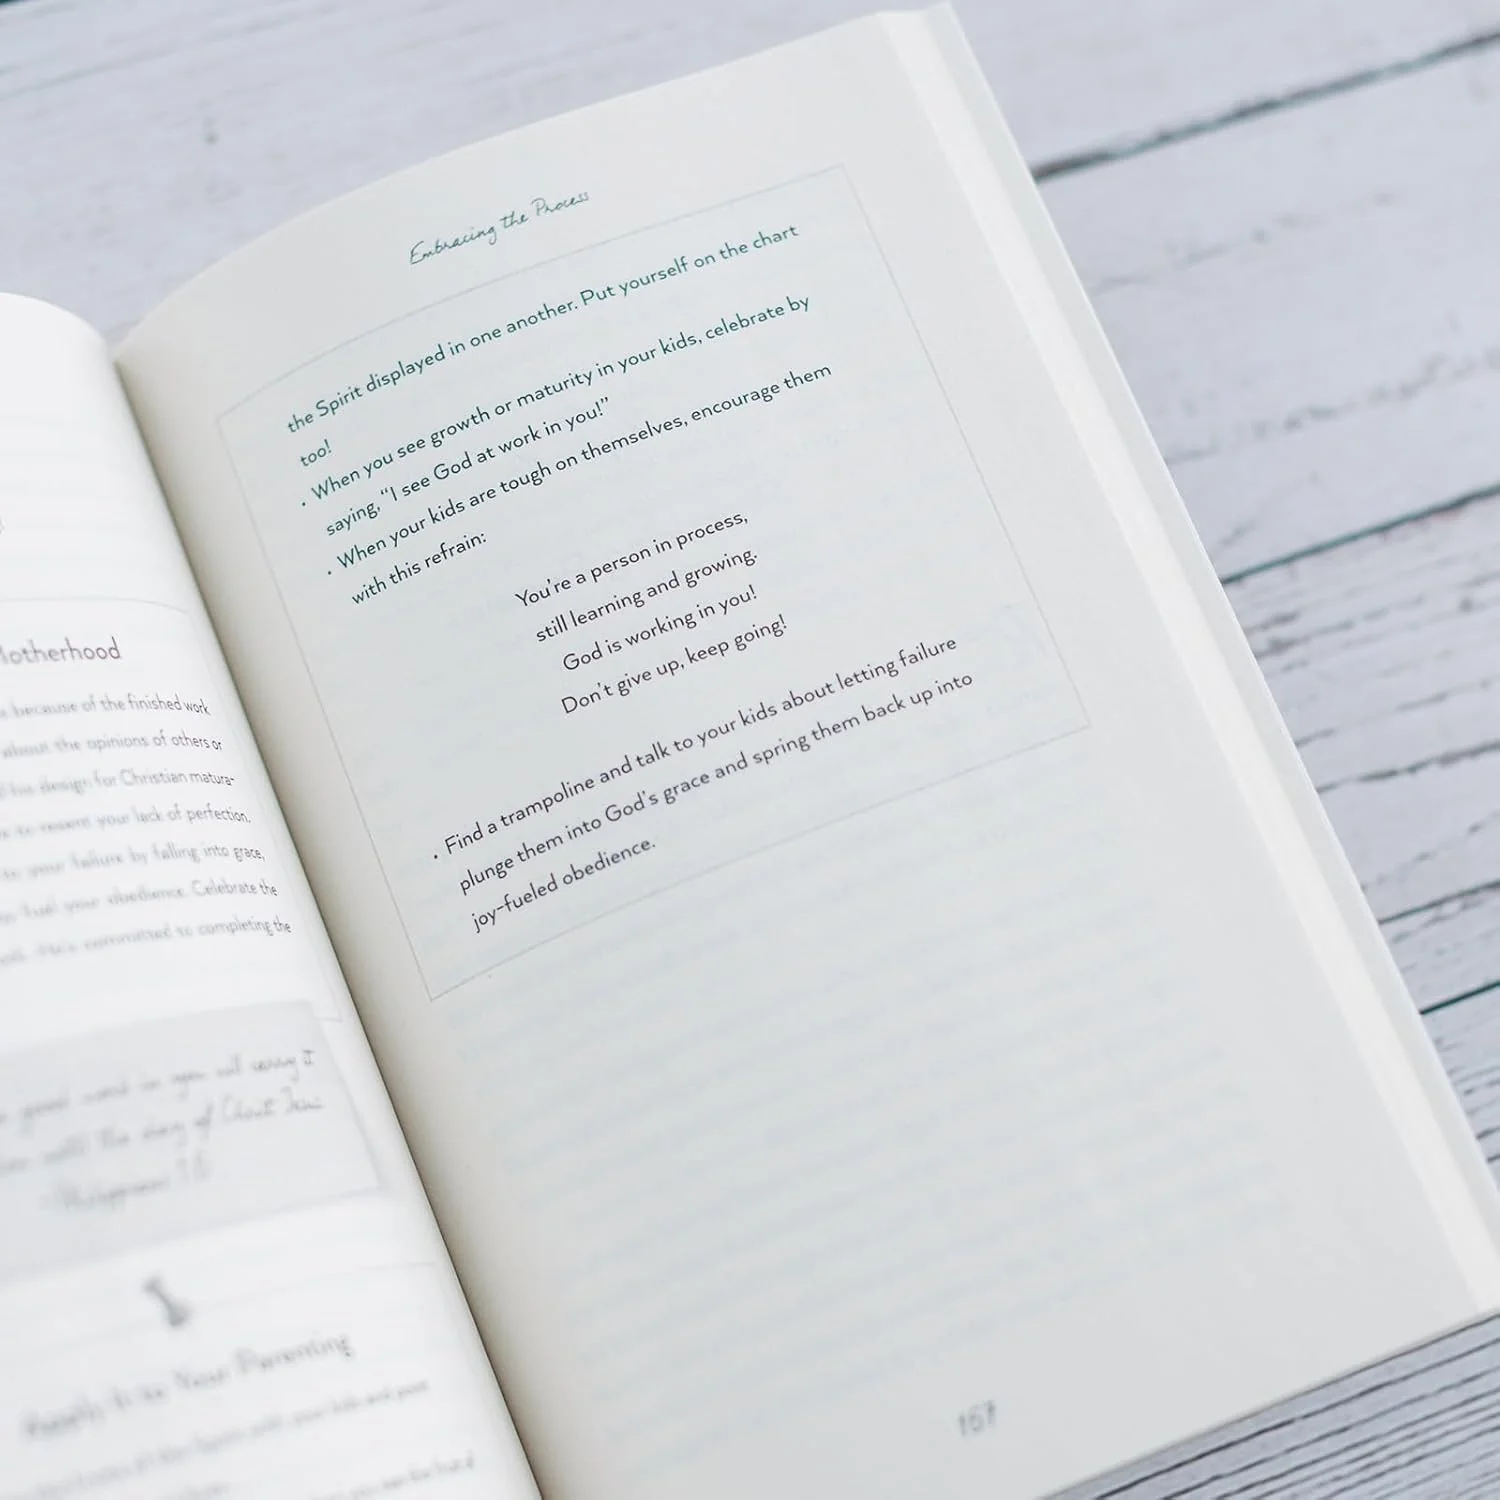 otherhood
because of the finished work
about the opinions of others or
his design for Christian matura-
to resent your lack of perfection.
to your failure by falling into grace,
to fuel your obedience. Celebrate the
committed to completing the
good work in you will carry it
until the day of Christ Jesus
Philippians 1:6
Apply It to Your Parenting
Embracing the Process
the Spirit displayed in one another. Put yourself on the chart
too!
• When you see growth or maturity in your kids, celebrate by
saying, “I see God at work in you!”
• When your kids are tough on themselves, encourage them
with this refrain:
You’re a person in process,
still learning and growing.
God is working in you!
Don’t give up, keep going!
• Find a trampoline and talk to your kids about letting failure
plunge them into God’s grace and spring them back up into
joy-fueled obedience.
167